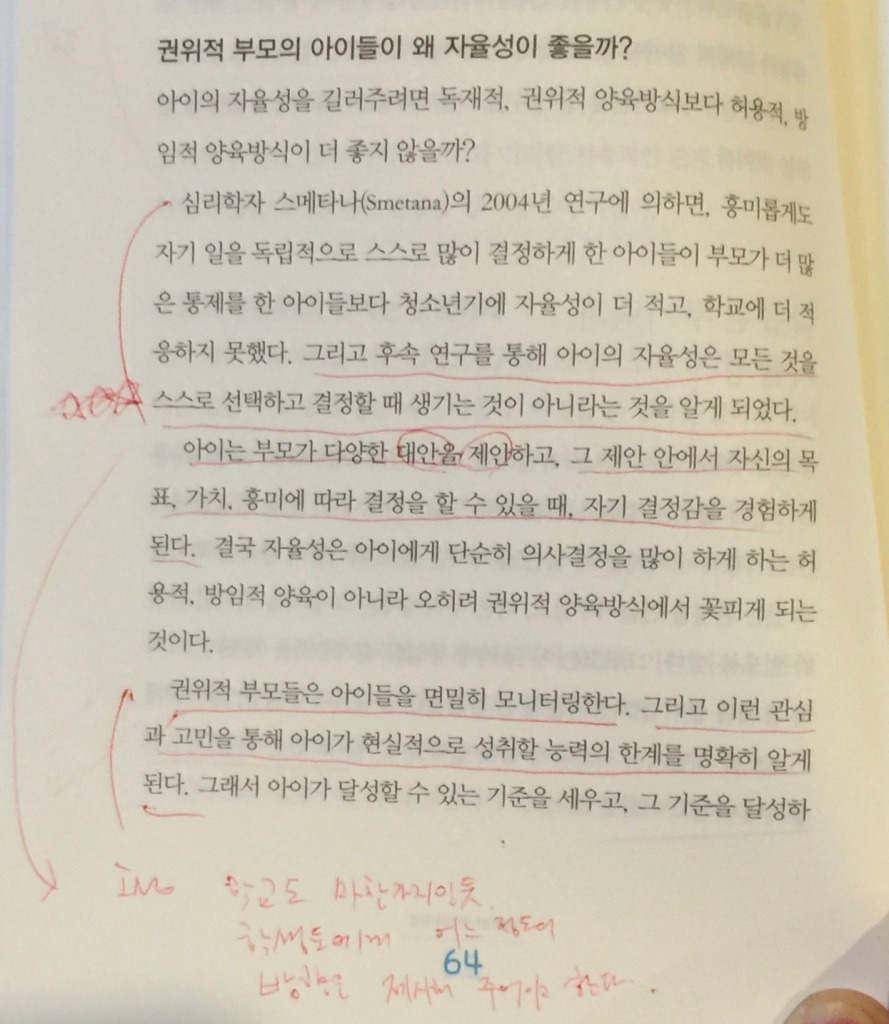 권위적 부모의 아이들이 왜 자율성이 좋을까?
아이의 자율성을 길러주려면 독재적, 권위적 양육방식보다 허용적, 방
임적 양육방식이 더 좋지 않을까?
심리학자 스메타나(Smetana)의 2004년 연구에 의하면, 흥미롭게도
자기 일을 독립적으로 스스로 많이 결정하게 한 아이들이 부모가 더 많
은 통제를 한 아이들보다 청소년기에 자율성이 더 적고, 학교에 더 적
응하지 못했다. 그리고 후속 연구를 통해 아이의 자율성은 모든 것을
스스로 선택하고 결정할 때 생기는 것이 아니라는 것을 알게 되었다.
아이는 부모가 다양한 대안을 제안하고, 그 제안 안에서 자신의 목
표, 가치, 흥미에 따라 결정을 할 수 있을 때, 자기 결정감을 경험하게
된다. 결국 자율성은 아이에게 단순히 의사결정을 많이 하게 하는 허
용적, 방임적 양육이 아니라 오히려 권위적 양육방식에서 꽃피게 되는
것이다.
권위적 부모들은 아이들을 면밀히 모니터링한다. 그리고 이런 관심
과 고민을 통해 아이가 현실적으로 성취할 능력의 한계를 명확히 알게
된다. 그래서 아이가 달성할 수 있는 기준을 세우고, 그 기준을 달성하
학교도 마찬가지인듯
학생들에게 어느 정도의
64
방향은 제시해 주어야 한다.